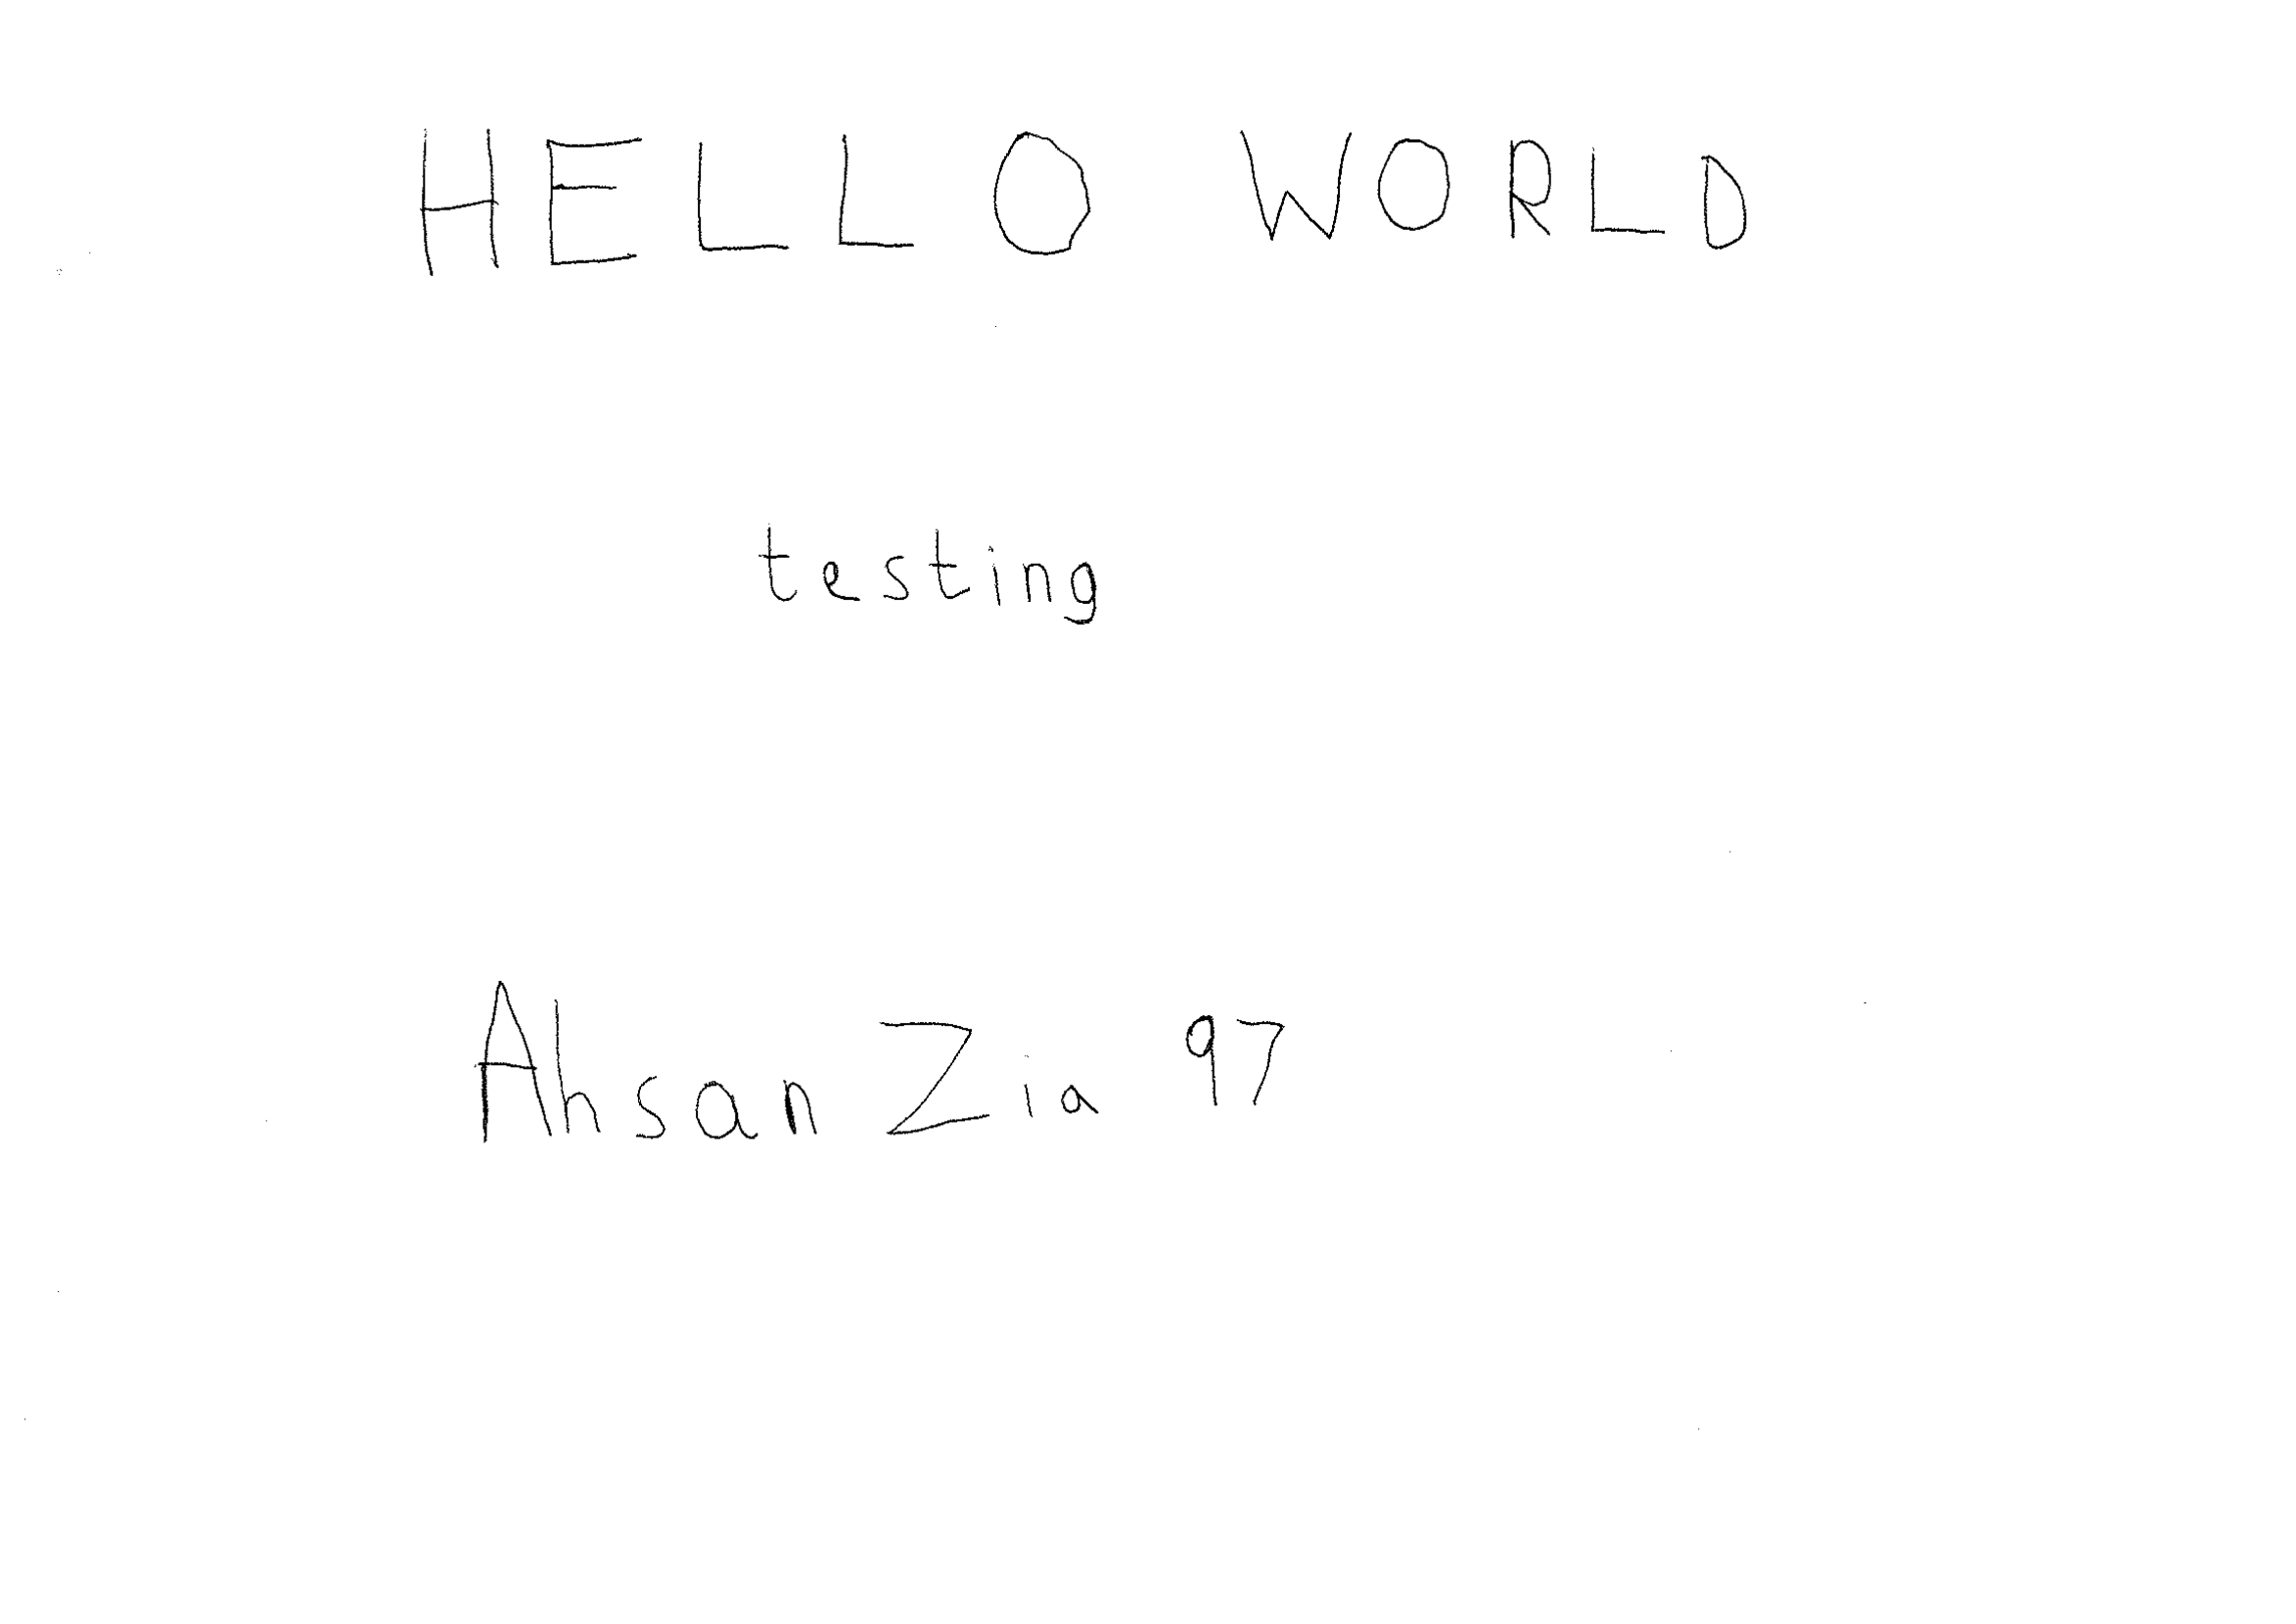 HELLO WORLD
testing
Ahsan Zia 97